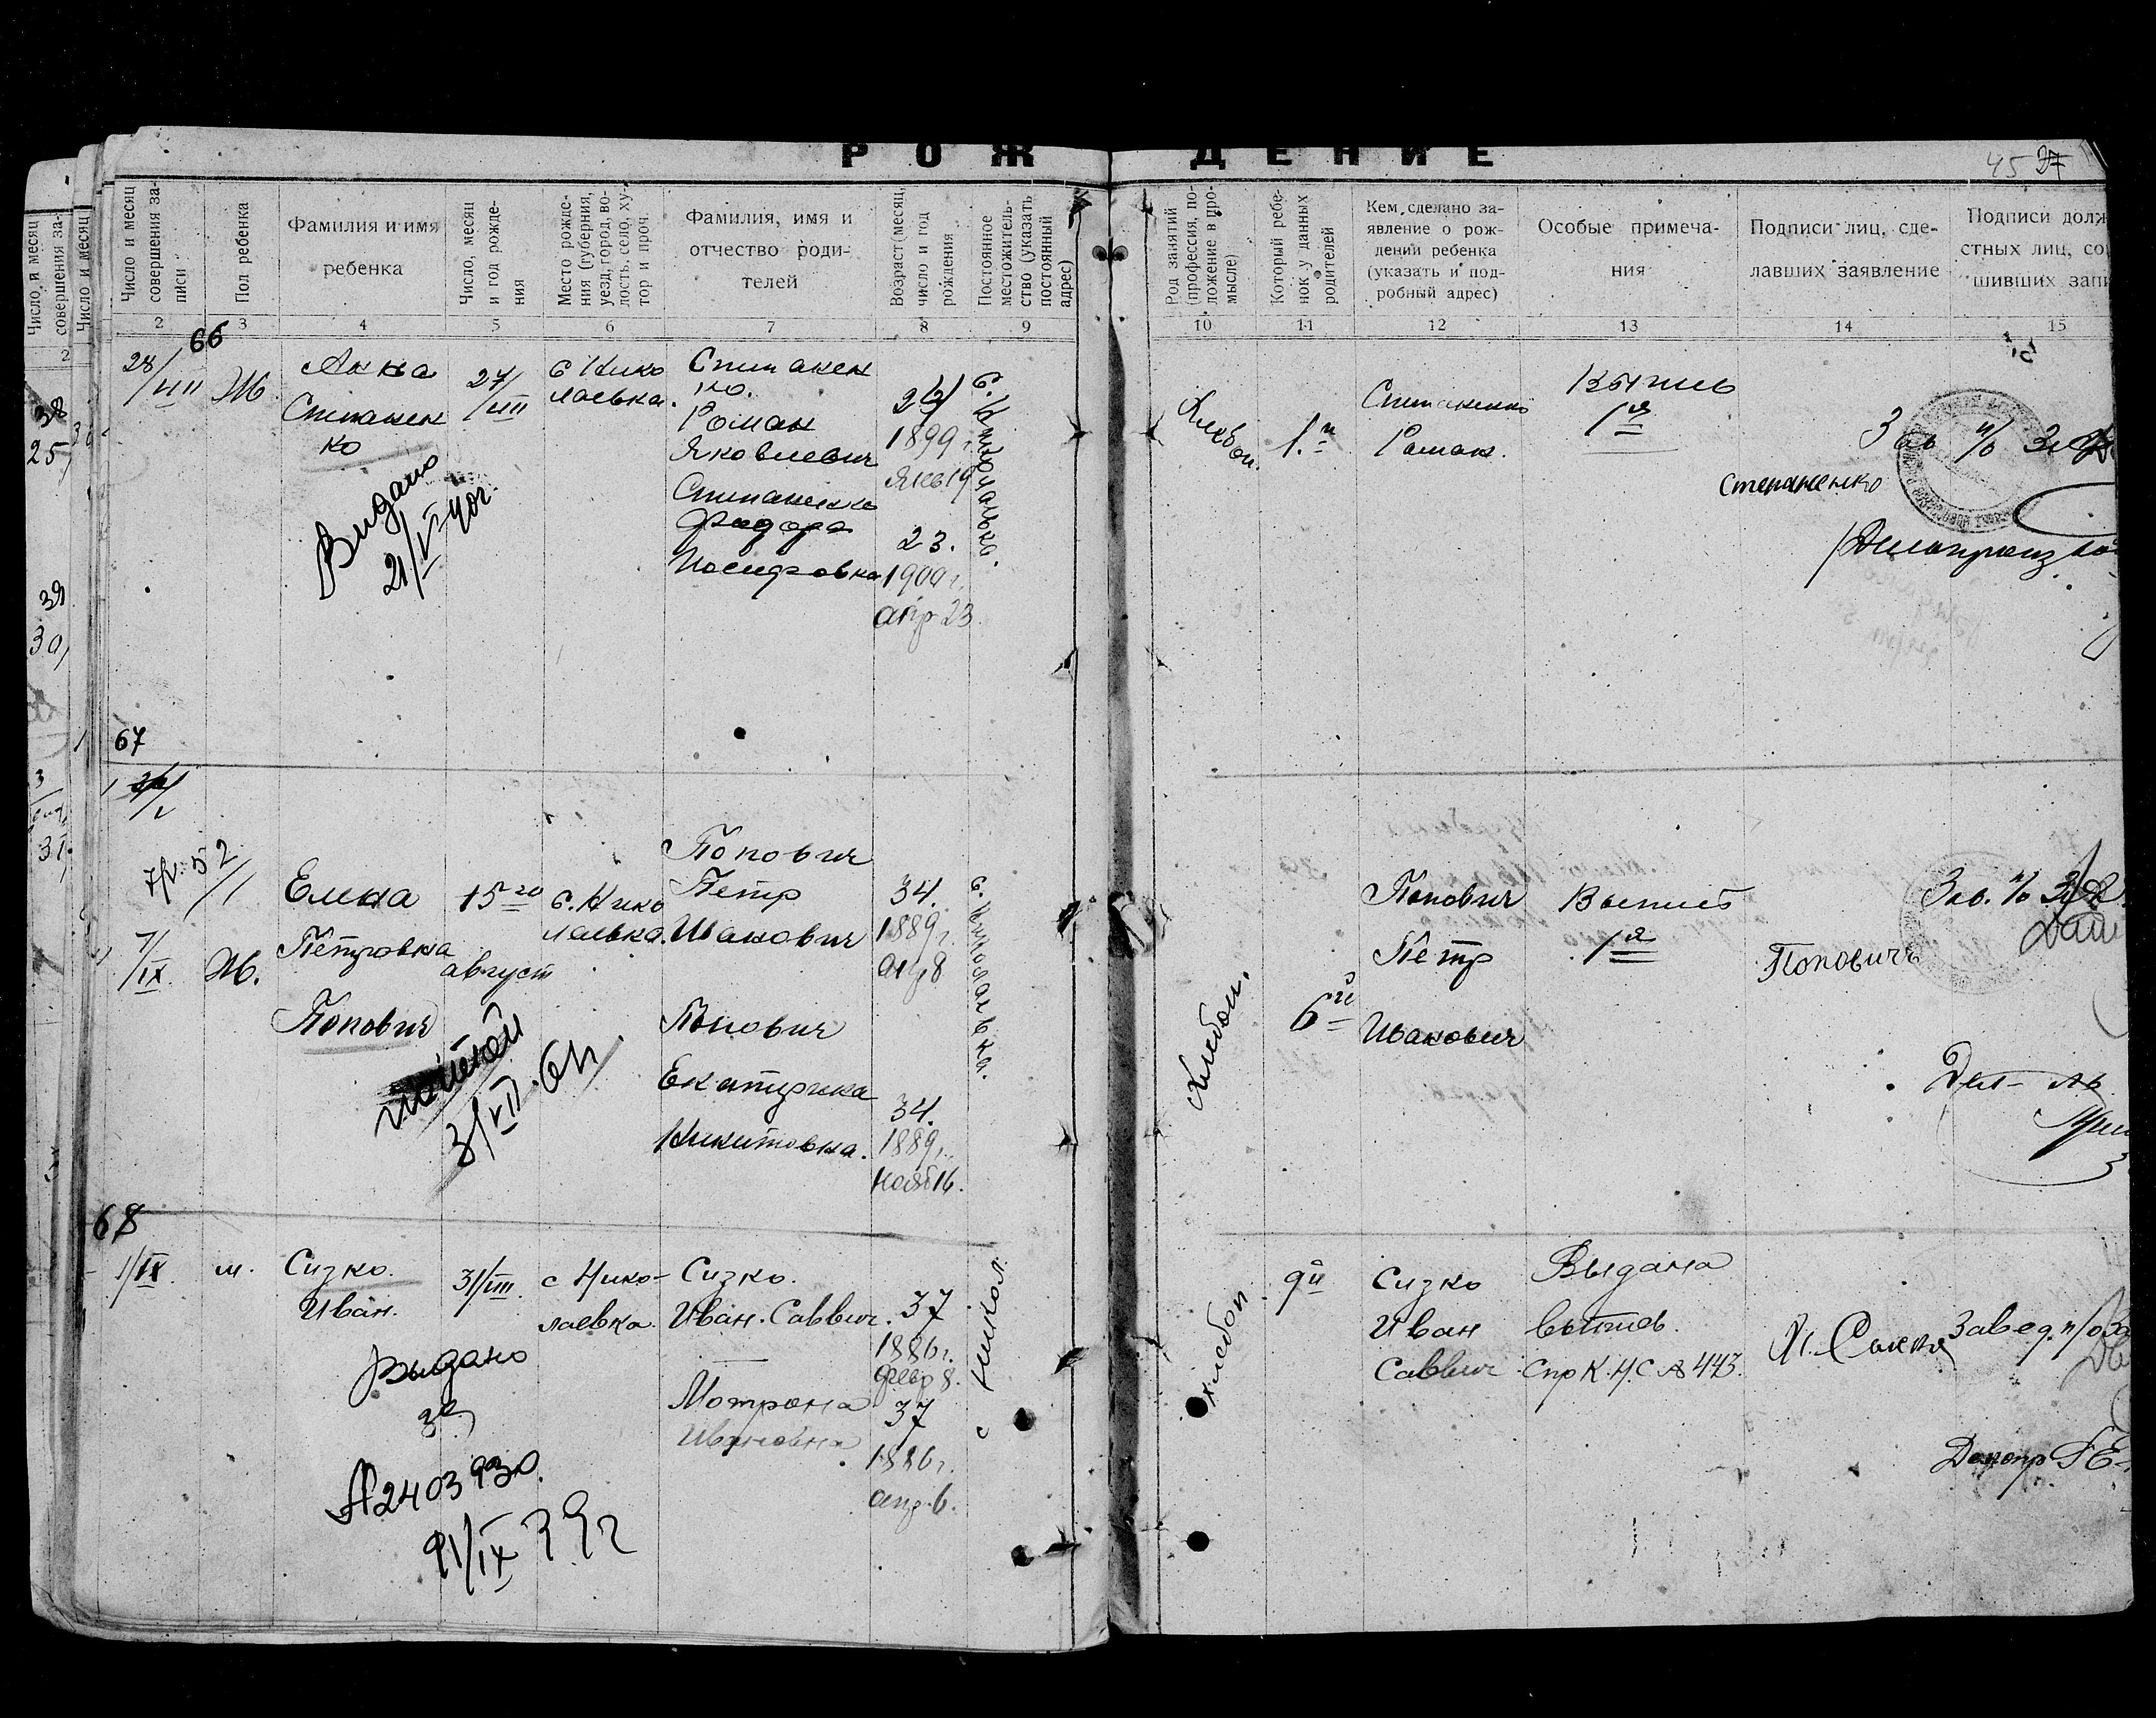 РОЖДЕНИЕ
45 27
Число и месяц совершения за-
Число и месяц
2
Число и месяц
совершения за-
писи
Пол ребенка
Фамилия и имя
ребенка
Число, месяц
и год рожде-
ния
Место рожде-
ния (губерния,
уезд, город, во-
лость, село, ху-
тор и проч.
Фамилия, имя и
отчество роди-
телей
Возраст (месяц,
число и год
рождения
Постоянное
местожитель-
ство (указать
постоянный
адрес)
Род занятий
(профессия, по-
ложение в про-
мысле)
Который ребе-
нок у данных
родителей
Кем сделано за-
явление о рож-
дении ребенка
(указать и под-
робный адрес)
Особые примеча-
ния
Подписи лиц, сде-
лавших заявление
Подписи долж
стных лиц, со
шивших запи
2 3 4 5 6 7 8 9 10 11 12 13 14 15
66
28/VIII
Ж
Анна
Степанен
ко
Видано
21/V 40г
27/VIII
с Нико
лаевка.
Степанен
ко.
Роман
Яковлевич
Степаненко
Федора
Иосифовна
24
1899 г.
Янв 19
23.
1900 г.
апр 23
с. Николаевка.
Хлебоп.
1.й
Степаненко
Роман.
1я
Зав п/о
Степаненко
67
7/IX
Ж.
Елена
Петровна
Попович
15го
август
3/VII.61г
с. Нико
лаевка.
Попович
Петр
Иванович
Попович
Екатерина
Никитовна.
34.
1889 г.
апр 8
34.
1889 г.
нояб 16.
с. Николаевка.
Хлебоп.
6й
Попович
Петр
Иванович
Выпись
1я
Поповичъ
Зав. п/о
68
1/IX
м.
Сизко.
Иван.
Выдано
за
А2403930.
21/IX 39г
31/VIII.
с Нико-
лаевка.
Сизко.
Иван. Саввич.
Мотрона
Ивановна
37
1886 г.
февр 8.
37
1886 г.
апр. 6.
с Никол
хлебоп
9й
Сизко
Иван
Саввич
Выдана
выпись.
Спр К.Н.С № 443.
Завед. п/о